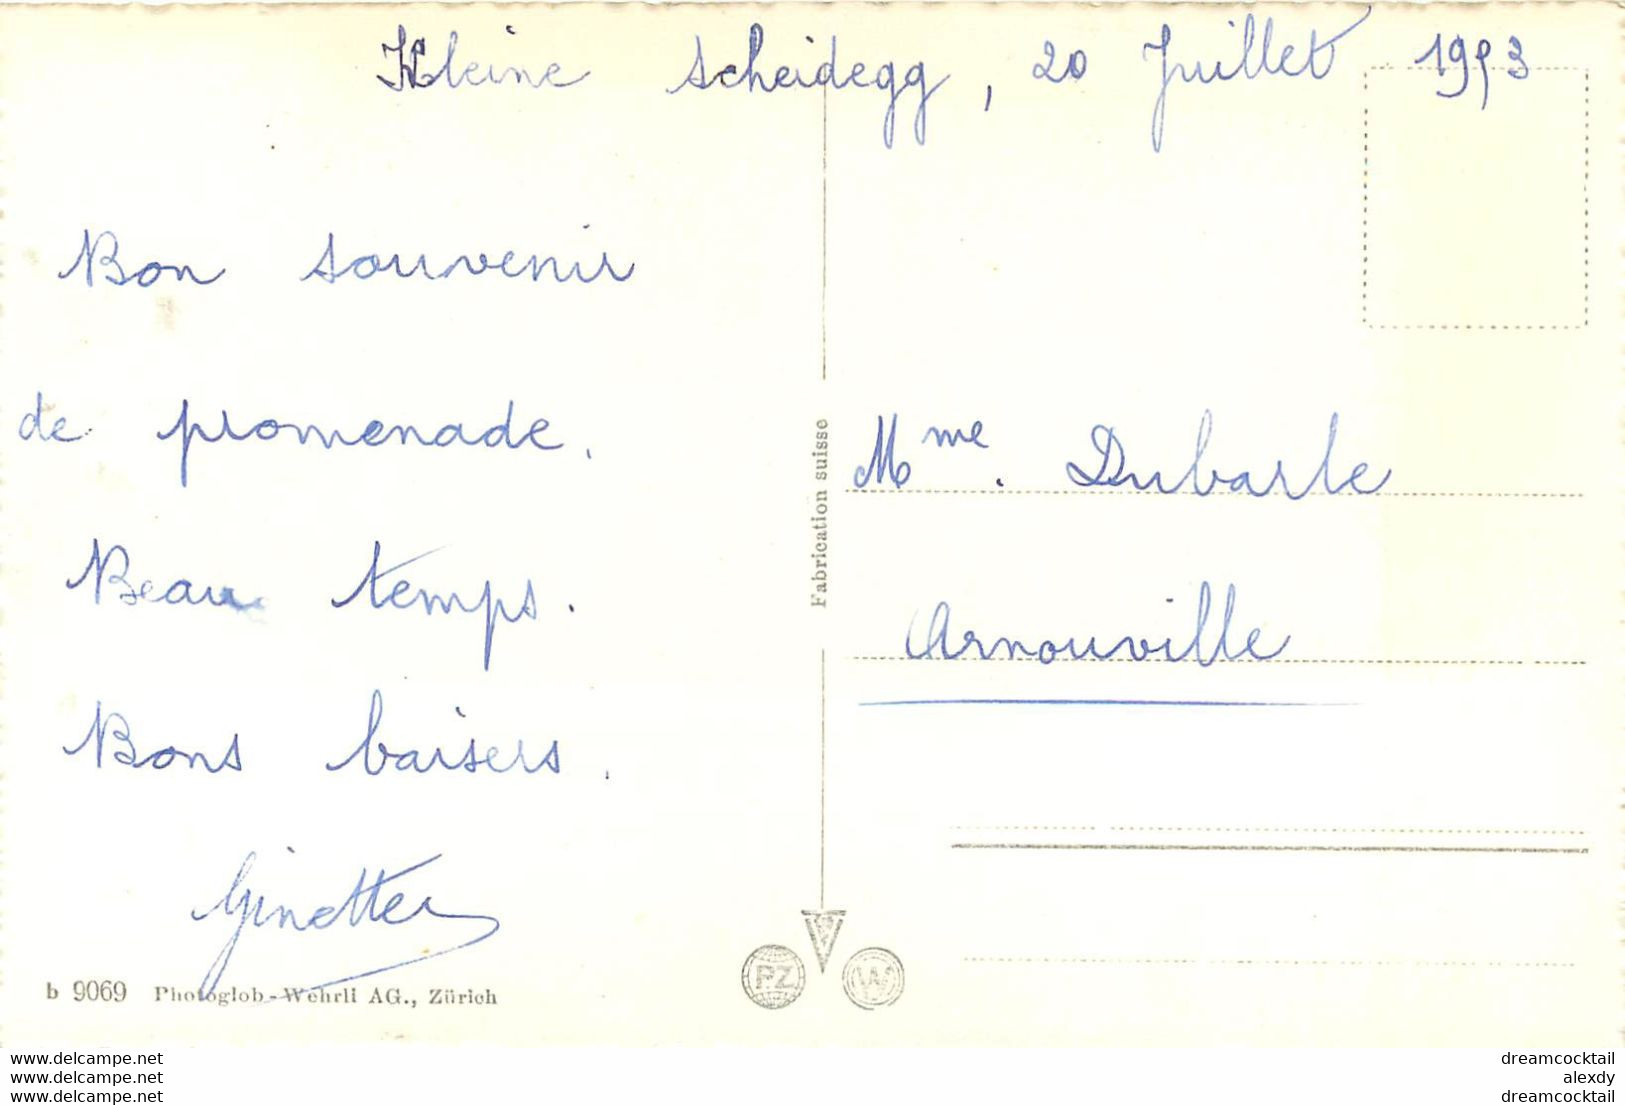 Kleine Scheidegg, 20 Juillet 1953
Bon souvenir
de promenade.
Beau temps.
Bons baisers.
Ginette
Mme. Dubarle
Arnouville
Fabrication suisse
PZ
W
b 9069 Photoglob-Wehrli AG., Zürich
www.delcampe.net
www.delcampe.net
www.delcampe.net
dreamcocktail
alexdy
dreamcocktail